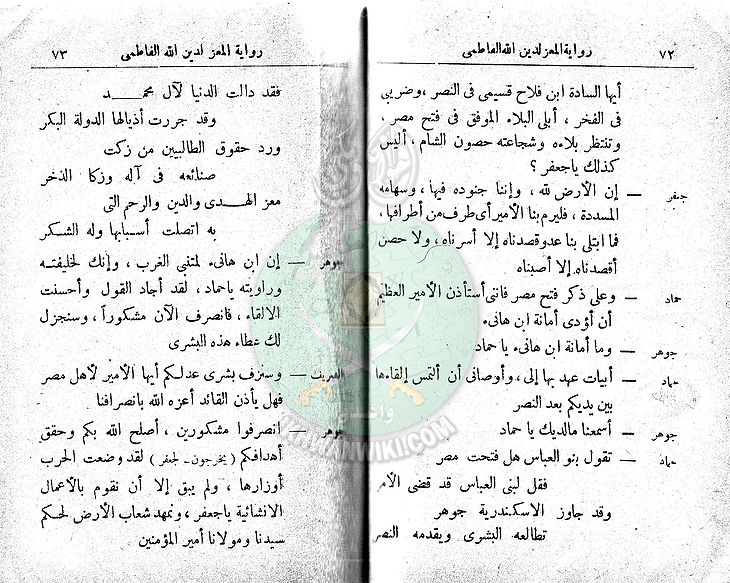 رواية المعز لدين الله الفاطمى
٧٢
أيها السادة ابن فلاح قسيمى فى النصر ، وضريبى
فى الفخر ، أبلى البلاء الموفق فى فتح مصر ،
وتنتظر بلاءه وشجاعته حصون الشام ، أليس
كذلك ياجعفر ؟
جعفر — إن الأرض لله ، وإننا جنوده فيها ، وسهامه
المسددة ، فليرم بنا الأمير أى طرف من أطرافها ،
فما ابتلى بنا عدو قصدناه إلا أسرناه ، ولا حصن
أقصدناه إلا أصبناه
حماد — وعلى ذكر فتح مصر فاننى أستأذن الأمير العظيم
أن أؤدى أمانة ابن هانىء
جوهر — وما أمانة ابن هانىء يا حماد
حماد — أبيات عهد بها إلى ، وأوصانى أن ألتمس إلقاءها
بين يديكم بعد النصر
جوهر — أسمعنا مالديك يا حماد
حماد — تقول بنو العباس هل فتحت مصر
فقل لبنى العباس قد قضى الأمر
وقد جاوز الاسكندرية جوهر
تطالعه البشرى ويقدمه النصر
رواية المعز لدين الله الفاطمى
٧٣
فقد دالت الدنيا لآل محمـــد
وقد جررت أذيالها الدولة البكر
ورد حقوق الطالبيين من زكت
صنائعه فى آله وزكا الذخر
معز الهــدى والدين والرحم التى
به اتصلت أسبابها وله الشكر
جوهر — إن ابن هانىء لمتنبى الغرب ، وإنك لخليفته
وراويته ياحماد ، لقد أجاد القول وأحسنت
الالقاء ، فانصرف الآن مشكوراً ، وسنجزل
لك عطاء هذه البشرى
الشريف — وسنزف بشرى عدلكم أيها الأمير لأهل مصر
فهل يأذن القائد أعزه الله بانصرافنا
جوهر — انصرفوا مشكورين ، أصلح الله بكم وحقق
أهدافكم ( يخرجون ـ لجعفر ) لقد وضعت الحرب
أوزارها ، ولم يبق إلا أن نقوم بالأعمال
الانشائية ياجعفر ، ونمهد شعاب الأرض لحكم
سيدنا ومولانا أمير المؤمنين
IKHWANWIKI.COM